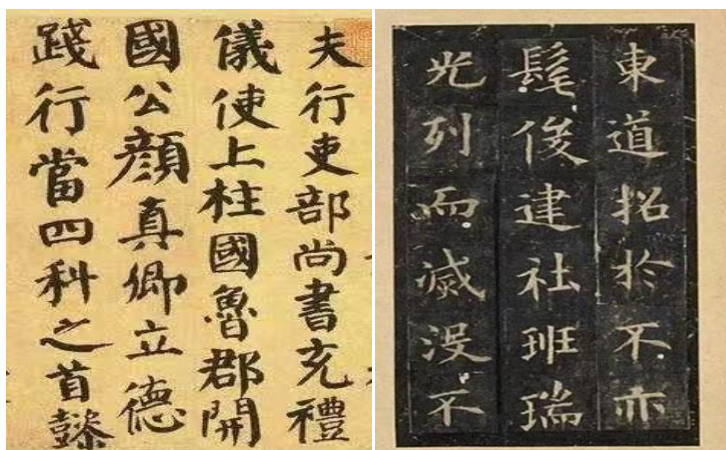 夫行吏部尚書充禮
儀使上柱國魯郡開
國公顏真卿立德
踐行當四科之首懿
東道招於不亦
髦俊建社班瑞
光列而滅没不